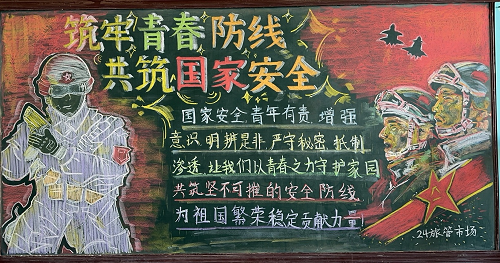 筑牢青春防线
共筑国家安全
国家安全,青年有责,增强
意识,明辨是非,严守秘密,抵制
渗透,让我们以青春之力守护家园
共筑坚不可摧的安全防线
为祖国繁荣稳定贡献力量
24旅管市场